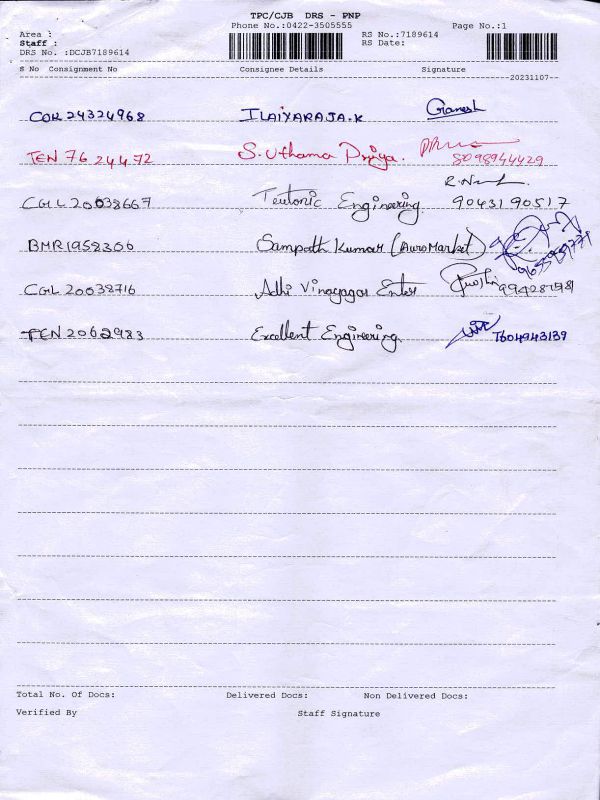 TPC/CJB DRS - PNP
Phone No.:0422-3505555 Page No.:1
Area :
Staff : RS No.:7189614
RS Date:
DRS No. :DCJB7189614
S No Consignment No Consignee Details Signature
20231107
COK 24324968 ILAIYARAJA.K Ganesh
TEN 76 24472 S. Uthama Priya. 8098944429
CGL 20038667 Teutonic Engineering 9043190517
BMR1958306 Sampath Kumar (Auro Market)
CGL 20038716 Adhi Vinayagar Enter
TEN 2062983 Excellent Engineering 7604943139
Total No. Of Docs: Delivered Docs: Non Delivered Docs:
Verified By Staff Signature